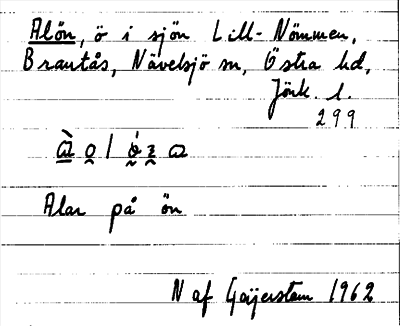 Alön, ö i sjön Lill-Nömmen,
Brantås, Nävelsjö sn, Östra hd,
Jönk. l.
299
Alar på ön
N af Geijerstam 1962